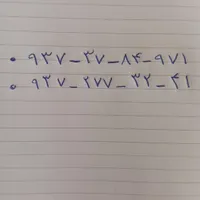 ۰ ۹۳۷_۳۷_۸۴_۹۷۱
۰ ۹۳۷_۲۷۷_۳۲_۴۱